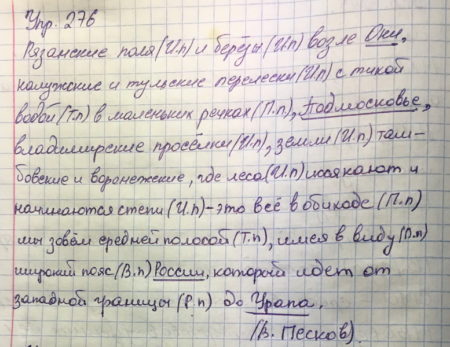 Упр. 276
Рязанские поля (И.п) и берёзы (И.п) возле Оки,
калужские и тульские перелески (И.п) с тихой
водой (Т.п) в маленьких речках (П.п), Подмосковье,
владимирские просёлки (И.п), земли (И.п) там-
бовские и воронежские, где леса (И.п) иссякают и
начинаются степи (И.п) - это всё в обиходе (П.п)
мы зовём средней полосой (Т.п), имея в виду (П.п)
широкий пояс (В.п) России, который идет от
западной границы (Р.п) до Урала.
(В. Песков).